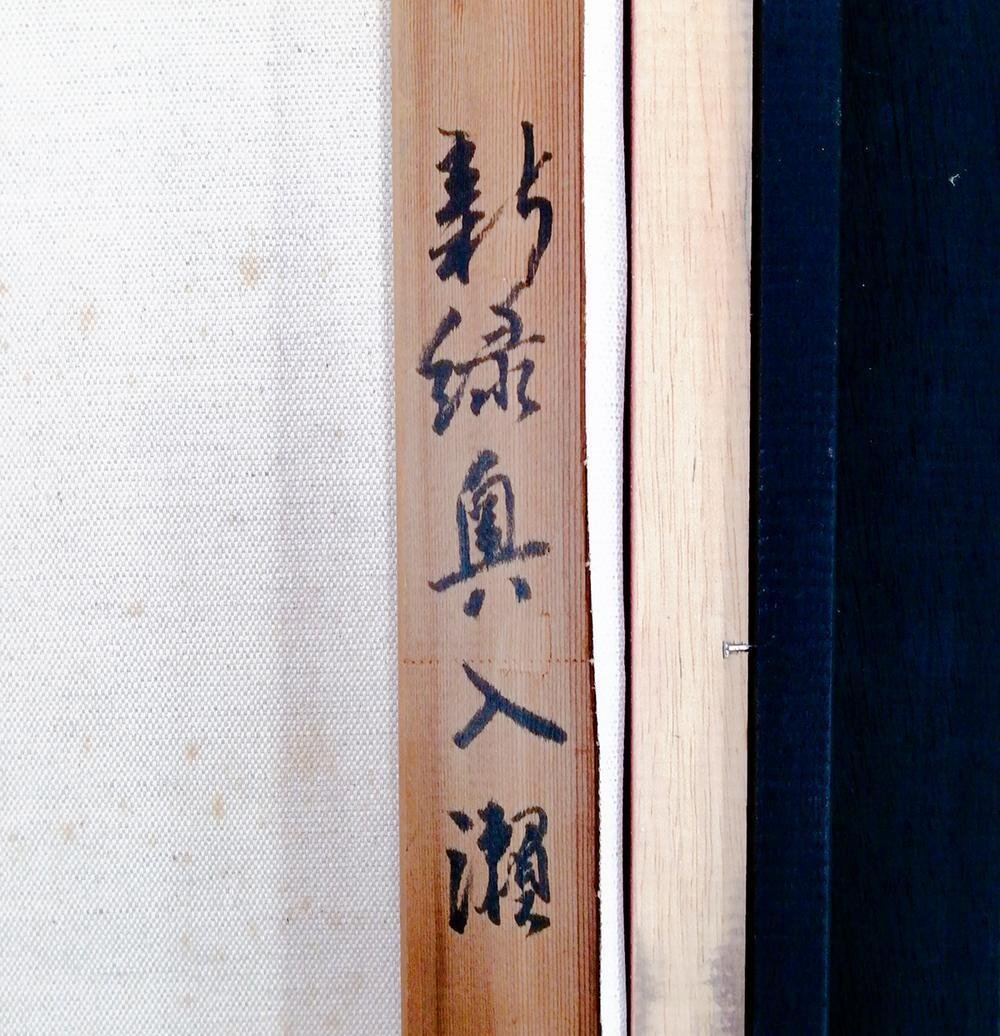 新緑奥入瀬